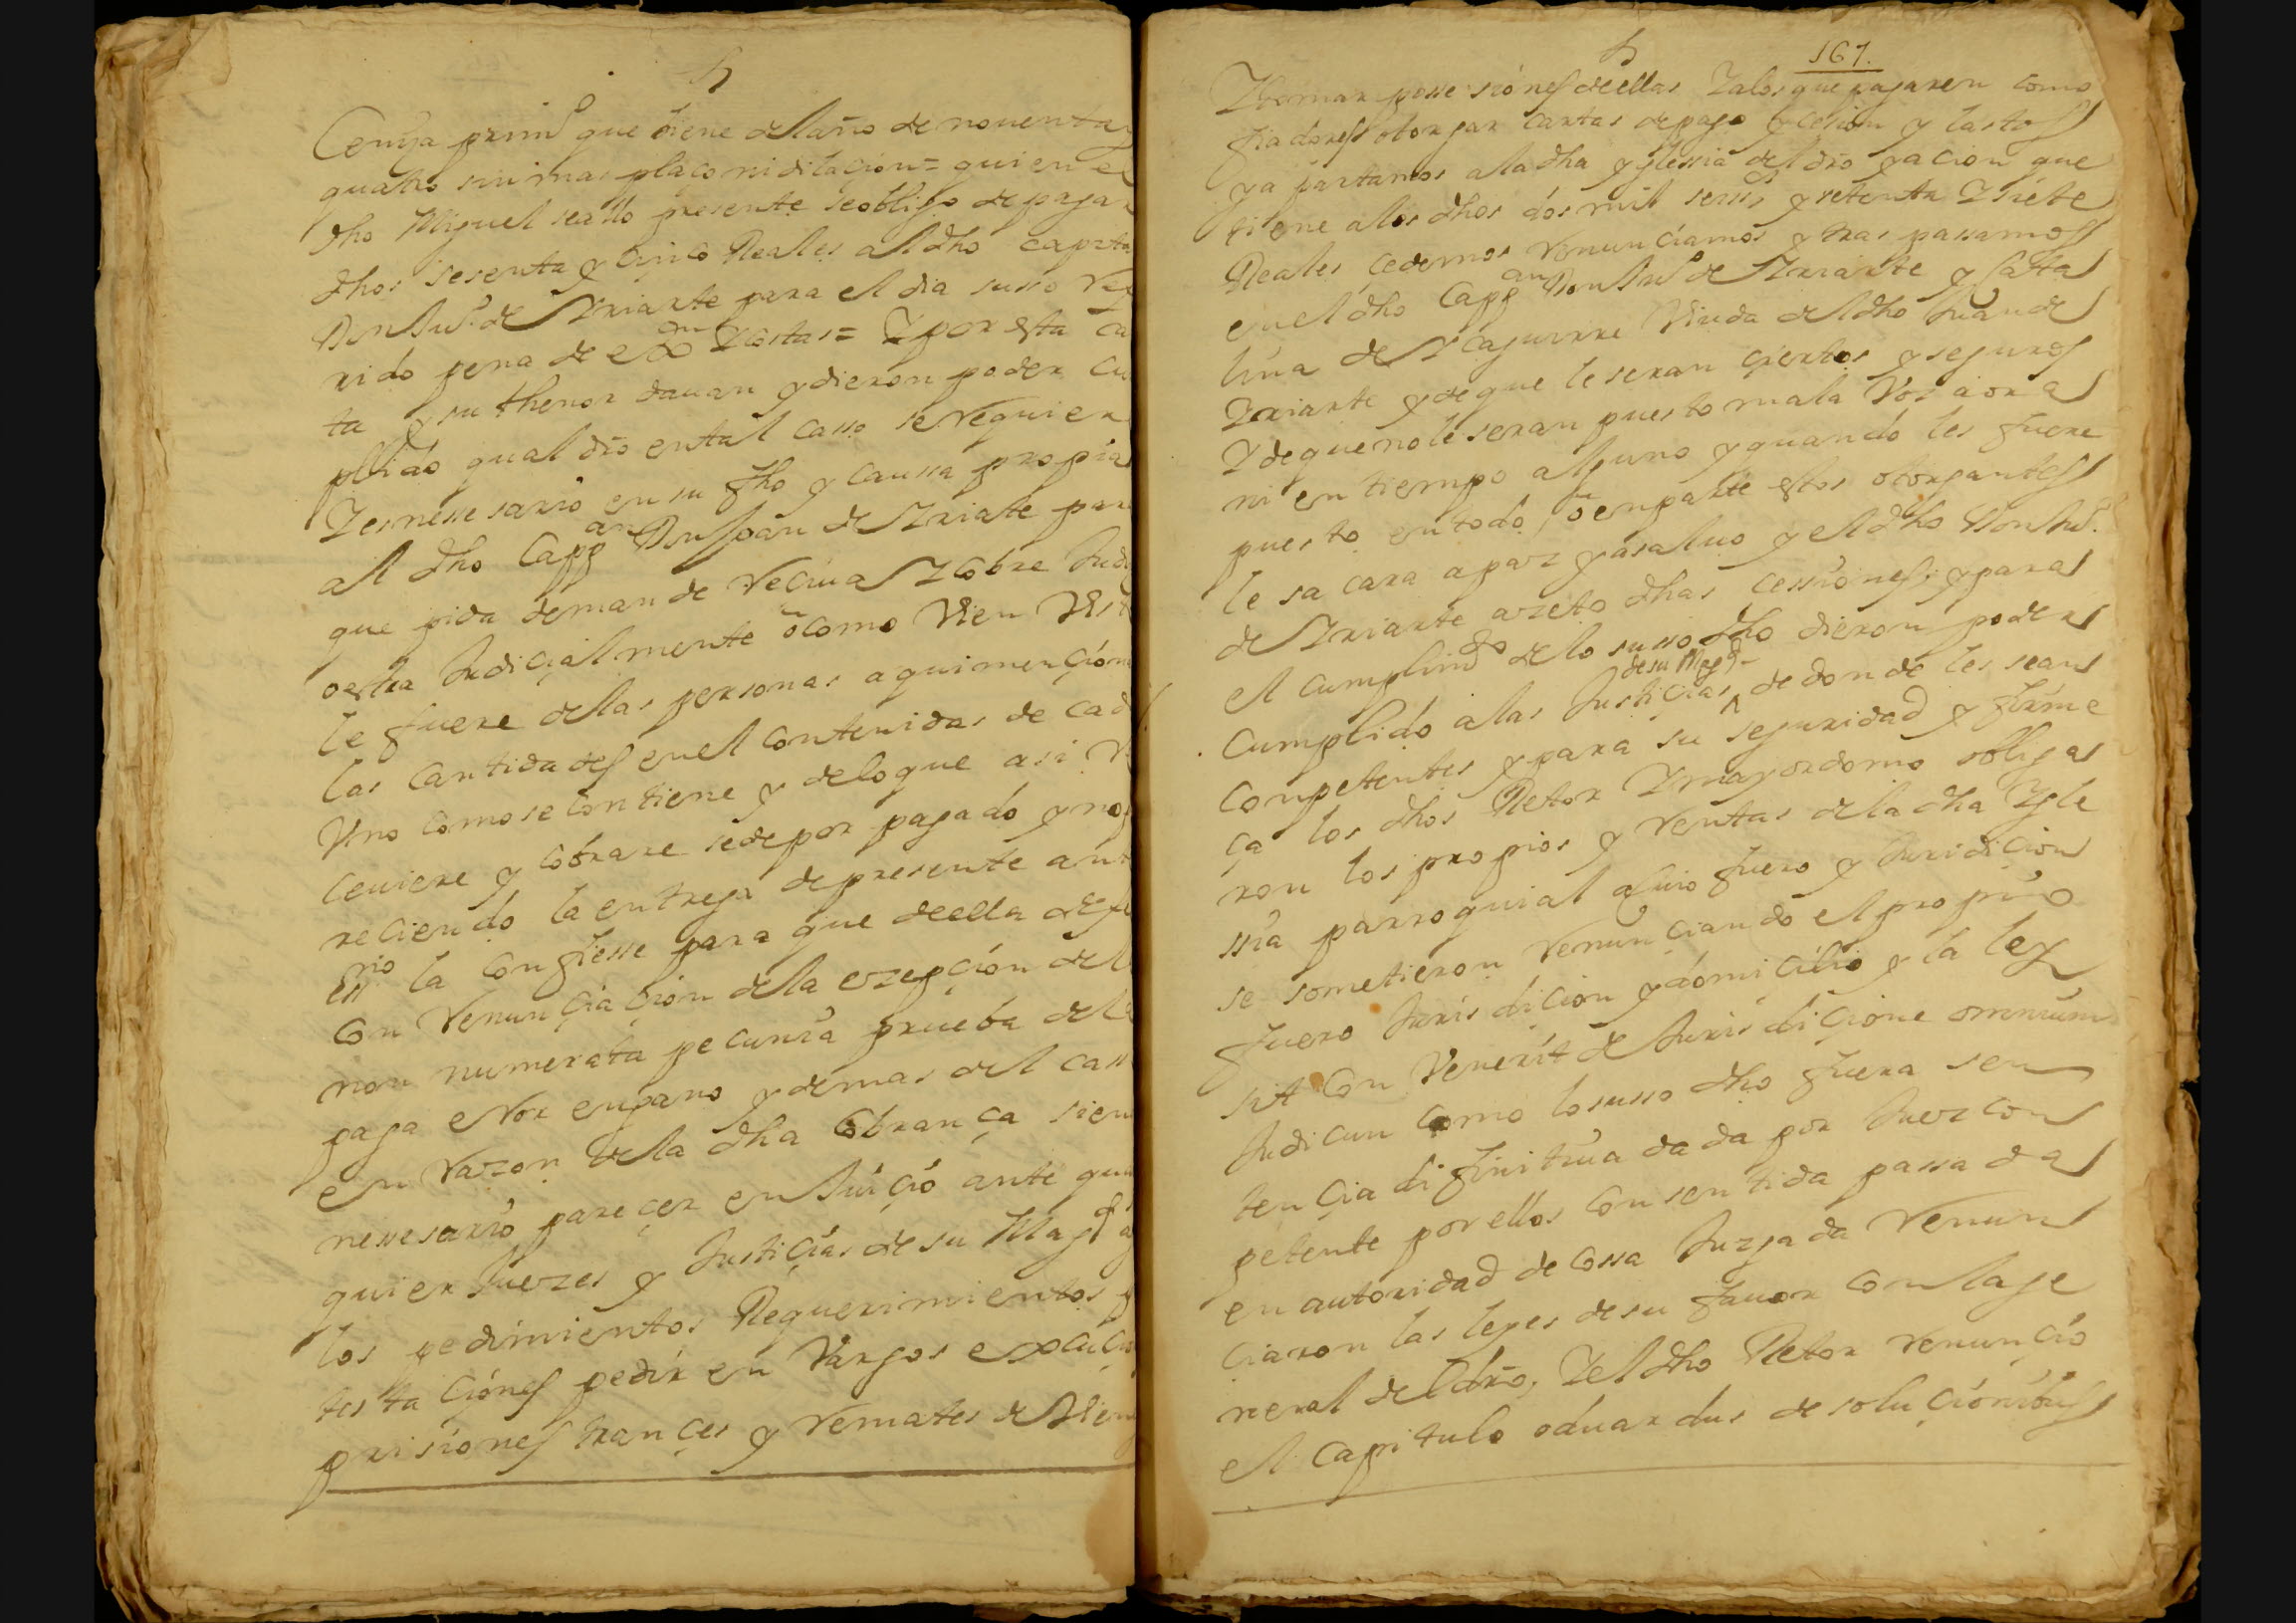 Cenya primo que viene del año de nouenta y
quatro sin mas plaço ni dilaçion = quien el
dho Miguel se allo presente se obligo de pagar
dhos sesenta y çinco Reales al dho capita
Don Juo. de Yriarte para el dia susso refe
rido pena de exon Y costas = Y por esta car
ta y su thenor dauan y dieron poder cum
plido qual dro en tal casso se requier
Y es nessesario en su fho y caussa propia
al dho Cappan Don Joan de Yriarte para
que pida demande reciua Y Cobre Judi
oextra Judiçialmente o como Vien Visto
le fuere de las personas aqui mençion
las cantidades en el contenidas de cada
Vno como se contiene y de lo que asi Re
ceuiere y cobrare se de por pagado y no pa
reciendo la entrega de presente ante
essno la confiesse para que de ella de fe
con renunçiaçion de la exzepçion de la
non numerata pecunia prueba de la
paga error engano y demas del casso
en razon de la dha Cobrança siendo
nessesario pareçer en Juiçio ante qual
quier Juezes y Justiçias de su Magd a
los pedimientos Requerimientos p
testaçiones pedir en Vargos execuçio
prisiones trançes y remates de Viene
167.
Y tomar possesiones de ellas Y a los que pagaren como
fiadores otorgar cartas de pago y cesion y lastos
y apartamos a la dha yglessia del dro y acion que
tiene a los dhos dos mil seissos y setenta Y siete
Reales cedemos renunçiamos y tras passamos
en el dho Cappan Don Juo de Yriarte y Cata
lina de Ycaguirre Viuda del dho Juan de
Yriarte y de que le seran çiertos y seguros
Y de que no le seran puesto mala Voz aora
ni en tiempo alguno y quando les fuere
puesto en todo o en parte estos otorgantes
le sacara a paz y a saluo y el dho Don Juo.
de Yriarte azeto dhas cessiones; y para
el cumplimto de lo susso dho dieron poder
Cumplido a las Justiçias de su Magd de donde les sean
Competentes y para su seguridad y firme
ça los dhos Retor Y mayordomo obliga
ron los propios y rentas de la dha Ygle
ssia parroquial a cuio fuero y Juridiçion
se sometieron renunçiando el propio
fuero Jurisdiçion y domiçilio y la ley
sit con Venerit de Jurisdiçione omnium
Judicun como lo susso dho fuera sen
tençia difinitiua dada por Juez con
petente por ellos consentida passada
en autoridad de cossa Juzgada renun
çiaron las leyes de su fauor con la ge
neral del dro, Y el dho Retor renunçio
el capitulo oduardus de soluçionibus